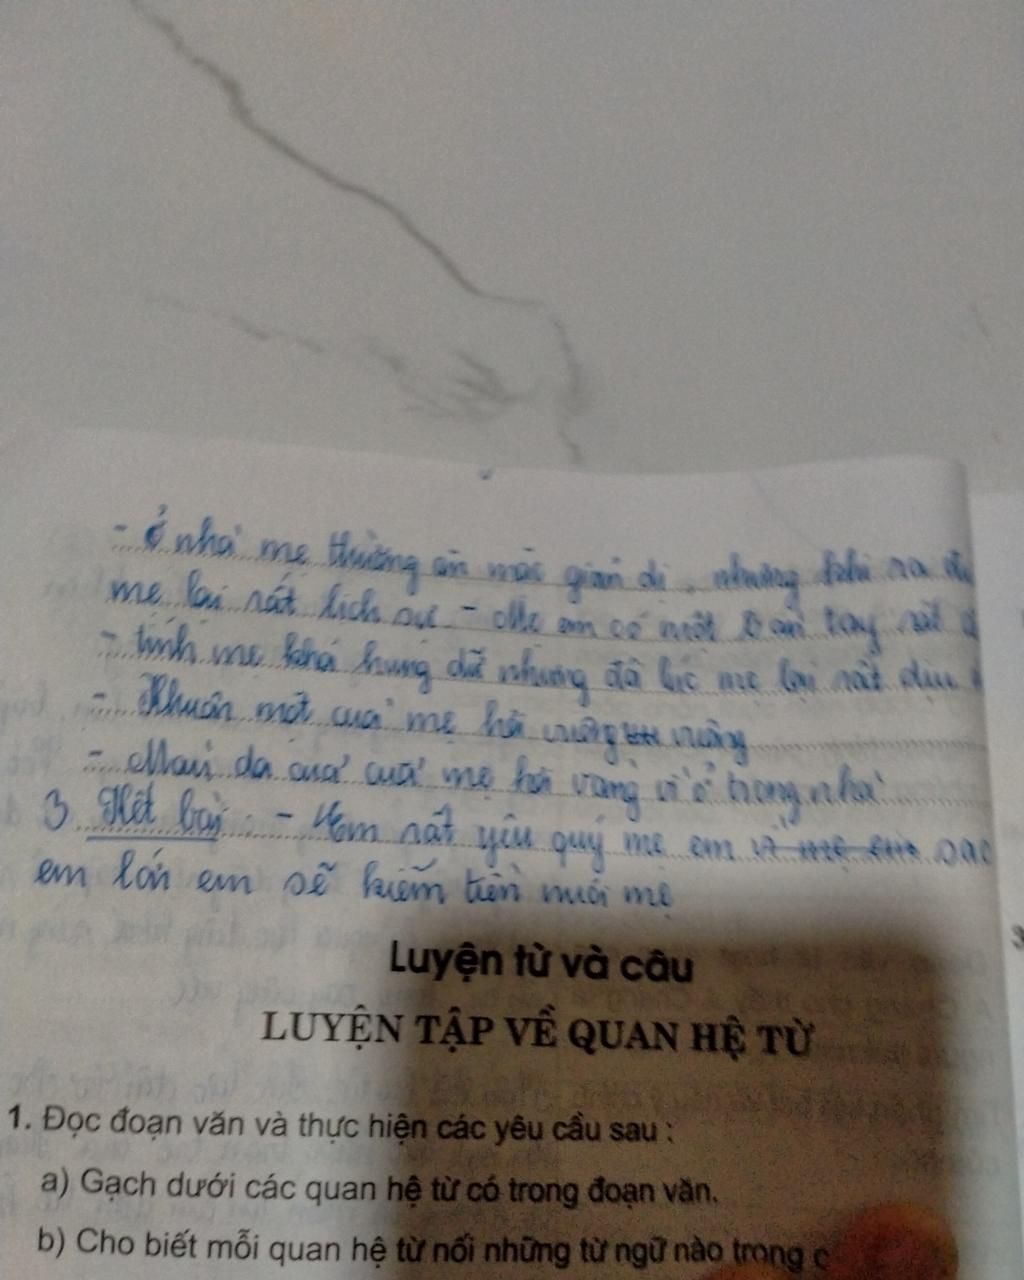 - ở nhà mẹ thường ăn mặc giản dị, nhưng khi ra
mẹ lại rất lịch sự - Mẹ em có một bàn tay rất
- tính mẹ khá hung dữ nhưng đã lúc mẹ lại rất dịu
- Khuân mặt của mẹ hơi vuông vuông
- Màu da của của mẹ hơi vàng vì ở trong nhà
3 Kết bài: - Em rất yêu quý mẹ em vì mẹ em sao
em lớn em sẽ kiếm tiền nuôi mẹ
Luyện từ và câu
LUYỆN TẬP VỀ QUAN HỆ TỪ
1. Đọc đoạn văn và thực hiện các yêu cầu sau :
a) Gạch dưới các quan hệ từ có trong đoạn văn.
b) Cho biết mỗi quan hệ từ nối những từ ngữ nào trong